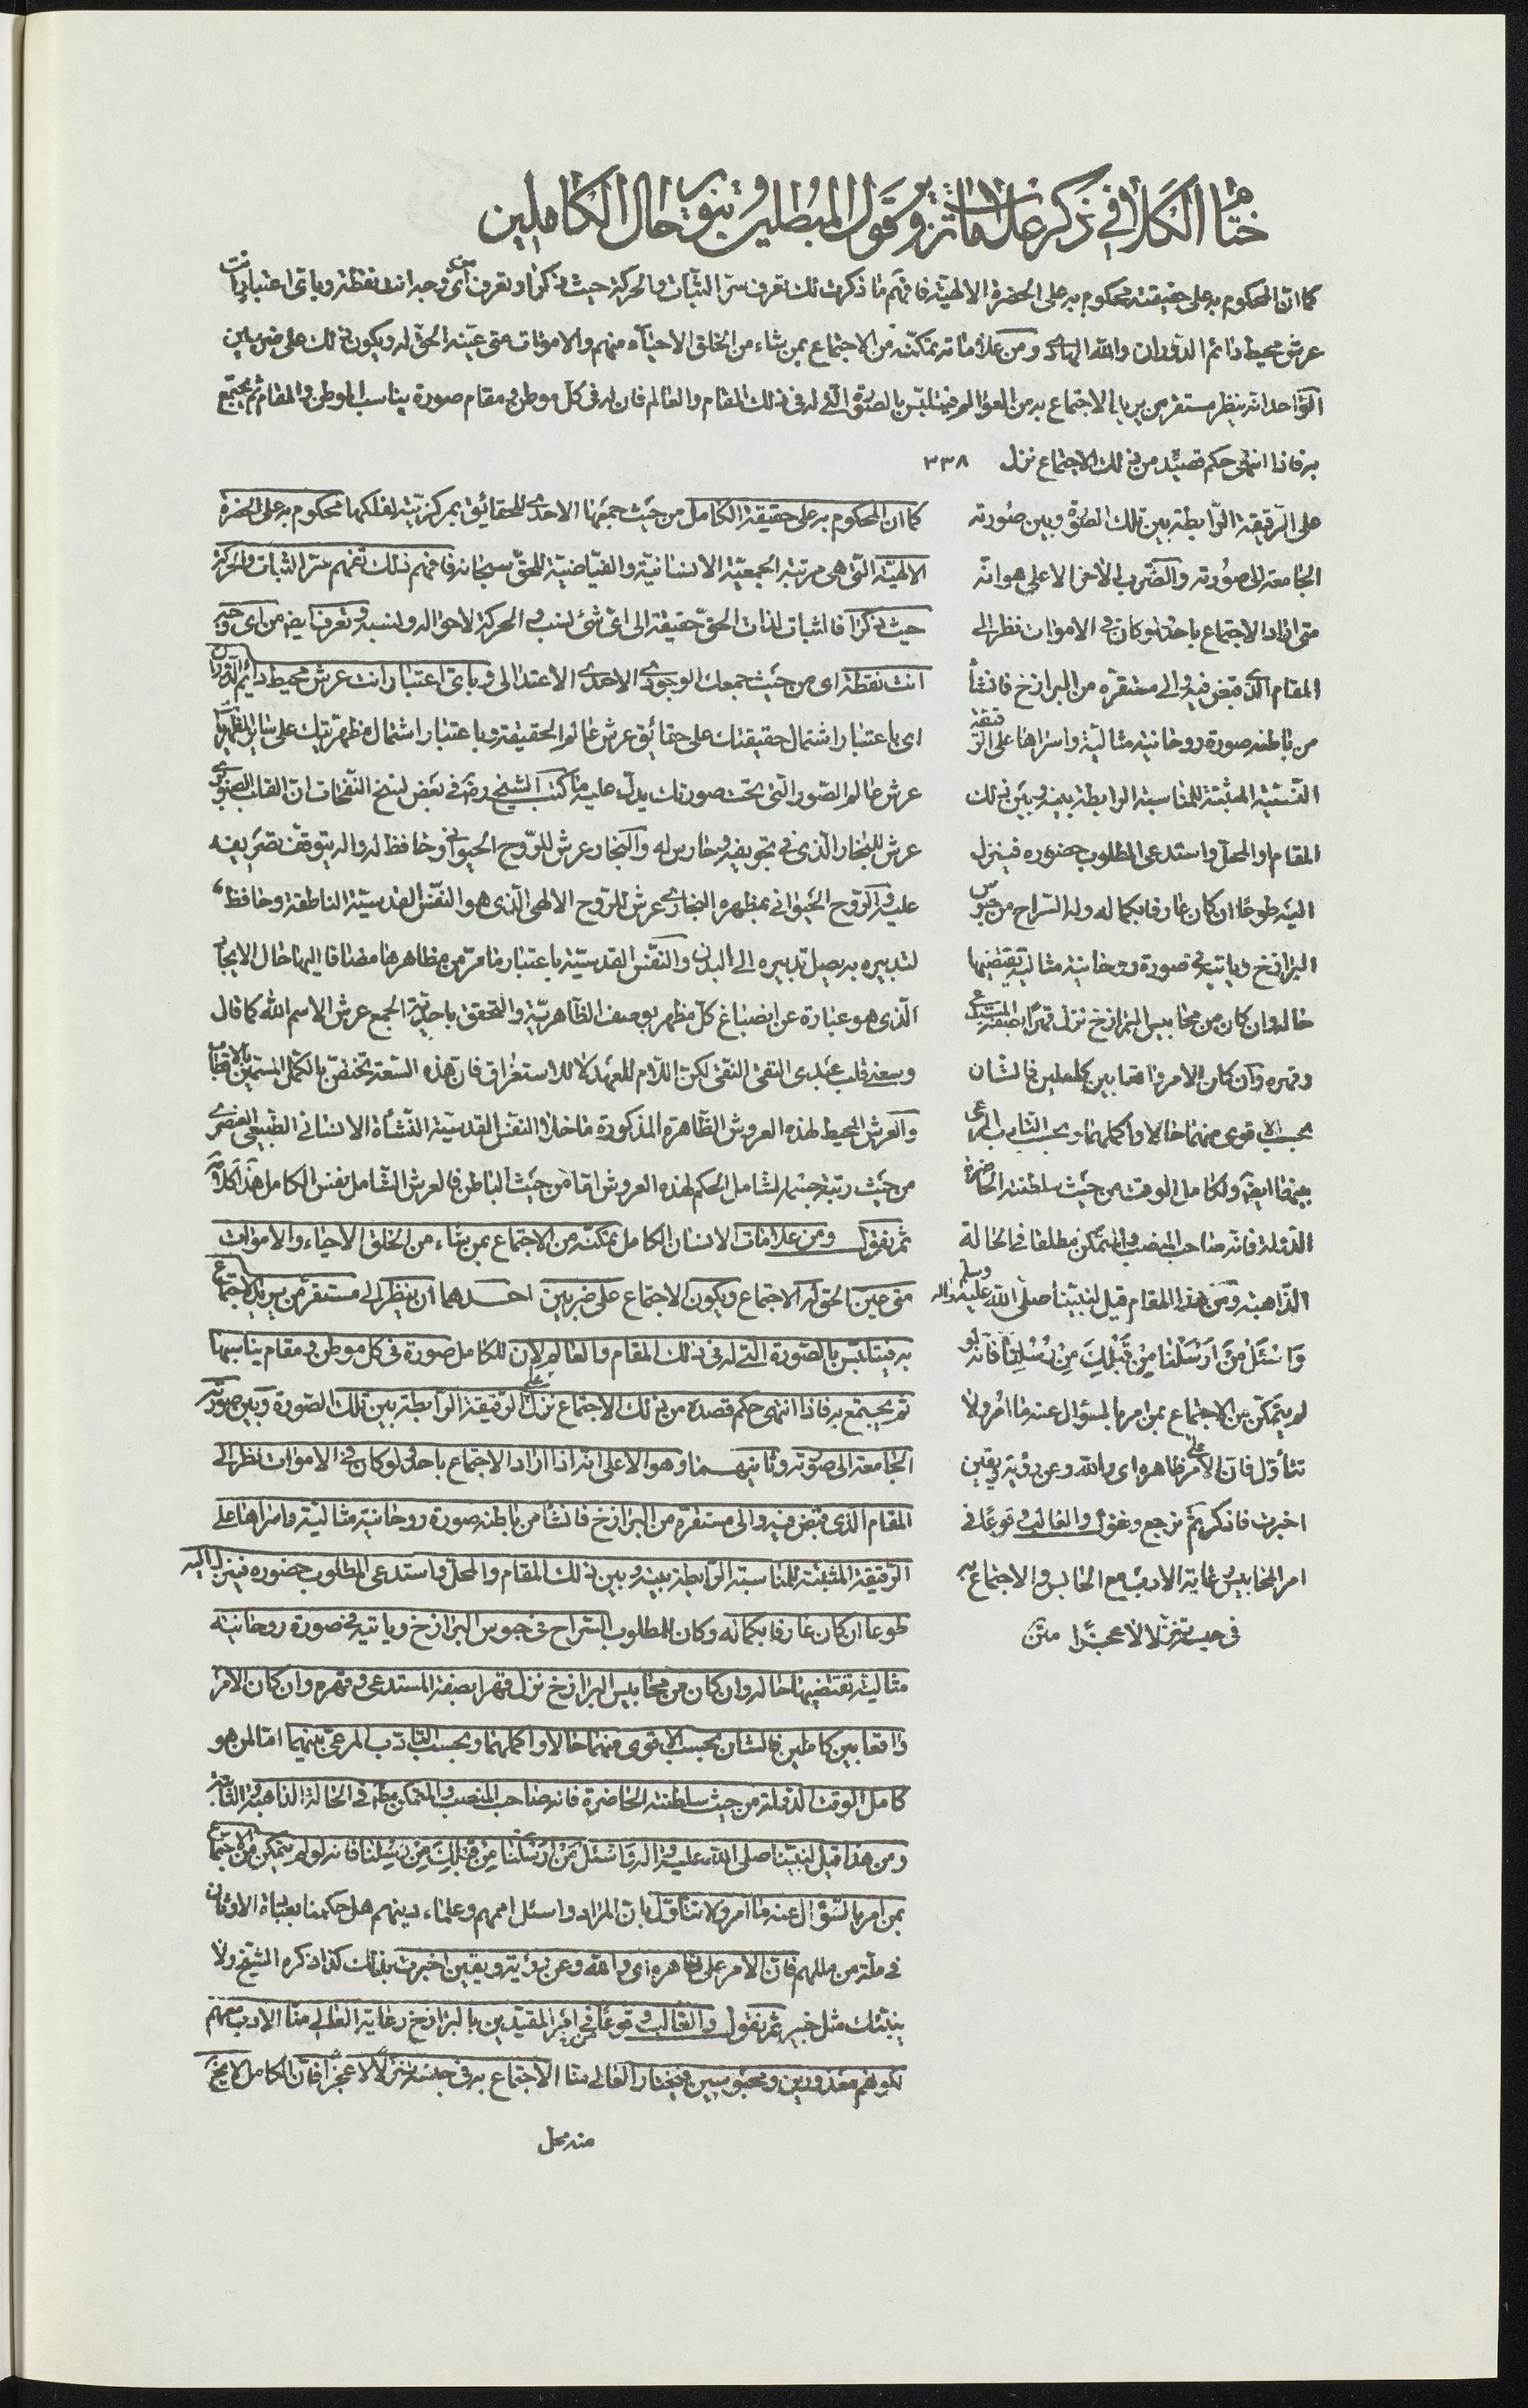 ختام الكلام في ذكر علامات تزوير قول المبطلين وتنوير حال الكاملين
كما ان المحكوم به على حقيقته محكوم به على الحضرة الالهية فافهم ما ذكرت لك تعرف سر الثبات والحركة حيث ذكرا وتعرف من أى وجه انت نقطة وباى اعتبار انت
عرش محيط دائم الدوران والله الهادى ومن علاماته تمكنه من الاجتماع بمن شاء من الخلق الاحياء منهم والاموات متى عينه الحق له ويكون ذلك على ضربين
الواحد انه ينظر مستقر من يريد الاجتماع به من العوالم فيتلبس بالصورة التى له فى ذلك المقام والعالم فان له فى كل موطن ومقام صورة يناسب الموطن والمقام ثم يجتمع
به فاذا انتهى حكم قصده من ذلك الاجتماع نزل ٣٣٨
على الرقيقة الرابطة بين تلك الصورة وبين صورته
الجامعة الى صورته والضرب الآخر الاعلى هو انه
متى اراد الاجتماع باحد ولو كان فى الاموات نظر الى
المقام الذى قبض فيه والى مستقره من البرازخ فانشأ
من باطنه صورة روحانية مثالية واسراها على الرقيقة
النسبية المثبتة للمناسبة الرابطة بينه وبين ذلك
المقام والمحل واستدعى المطلوب حضوره فينزل
اليه طوعا ان كان عارفا بكماله وله السراح من حبوس
البرازخ وياتيه فى صورة روحانية مثالية تقتضيها
حاله وان كان من محابيس البرازخ نزل قهرا بصفة المستدعى
وقهره وان كان الامر واقعا بين كاملين فالشان
بحسب الاقوى منهما حالا واكملهما وبحسب التادب المرعى
بينهما ايضا ولكامل الوقت من حيث سلطنته الحاضرة
الدولة فانه صاحب المنصب والمتمكن مطلقا فى الحالة
الذاهبة ومن هذا المقام قيل لنبينا صلى الله عليه واله وسلم
وَاسْئَلْ مَنْ اَرْسَلْنا مِنْ قَبْلِكَ مِنْ رُسُلِنا فانه لو
لم يتمكن من الاجتماع بمن امر بالسؤال عنه ما امر ولا
تتأول فان الامر على ظاهره اى والله وعن رؤية ويقين
اخبرت فاذكر ثم نرجع ونقول والغالب وقوعا فى
امر المحابيس رعاية الادب مع الحابس والاجتماع به
فى حبسه تنزلا لا عجزا متن
كما ان المحكوم به على حقيقة الكامل من حيث جمعها الاحدى للحقائق بمركزيته لفلكها محكوم به على الحضرة
الالهية التى هى مرتبة الجمعية الانسانية والفياضية للحق سبحانه فافهم ذلك تفهم سر الثبات والحركة
حيث ذكرا فالثبات لذات الحق حقيقة الى اى شئ نسب والحركة لاحواله ولنسبه وتعرف ايضا من اى وجه
انت نقطة اى من حيث جمعك الوجودى الاحدى الاعتدالى وباى اعتبار انت عرش محيط دائم الدوران
اى باعتبار اشتمال حقيقتك على حقائق عرش عالم الحقيقة وباعتبار اشتمال مظهريتك على سائر المظاهر
عرش عالم الصور التى تحت صورتك يدل عليه ما كتب الشيخ رضه فى بعض نسخ النفحات ان القلب الصنوبرى
عرش للبخار الذى فى تجويفه وحارس له والبخار عرش للروح الحيوانى وحافظ له واله يتوقف تصريفه
عليه والروح الحيوانى بمظهره البخارى عرش للروح الالهى الذى هو النفس القدسية الناطقة وحافظ
لتدبيره به يصل تدبيره الى البدن والنفس القدسية باعتبار ما مر من مظاهرها مضافا اليها حال الايجاد
الذى هو عبارة عن انصباغ كل مظهر بوصف الظاهرية والتحقق باحدية الجمع عرش الاسم الله كما قال
وسعنى قلب عبدى التقى النقى لكن اللام للعهد لا للاستغراق فان هذه السعة تختص بالكمل المستمين بالاقطاب
والعرش المحيط لهذه العروش الظاهرة المذكورة ما خلا النفس القدسية النشأة الانسانى الطبيعى العنصرى
من حيث رتبة جسمه لشامل الحكم لهذه العروش اما من حيث الباطن فالعرش الشامل نفس الكامل هذا كلامه
ثم نقول ومن علامات الانسان الكامل تمكنه من الاجتماع بمن شاء من الخلق الاحياء والاموات
متى عين الحق له الاجتماع ويكون الاجتماع على ضربين احدهما ان ينظر الى مستقر من يريد الاجتماع
به فيتلبس بالصورة التى له فى ذلك المقام والعالم لان للكامل صورة فى كل موطن ومقام يناسبها
ثم يجتمع به فاذا انتهى حكم قصده من ذلك الاجتماع نزل على الرقيقة الرابطة بين تلك الصورة وبين صورته
الجامعة الى صورته وثانيهما وهو الاعلى انه اذا اراد الاجتماع باحد ولو كان فى الاموات نظر الى
المقام الذى قبض فيه والى مستقره من البرازخ فانشأ من باطنه صورة روحانية مثالية واسراها على
الرقيقة المثبتة للمناسبة الرابطة بينه وبين ذلك المقام والمحل واستدعى المطلوب حضوره فينزل اليه
طوعا ان كان عارفا بكماله وكان للمطلوب السراح فى حبوس البرازخ وياتيه فى صورة روحانية
مثالية تقتضيها حاله وان كان من محابيس البرازخ نزل قهرا بصفة المستدعى وقهره وان كان الامر
واقعا بين كاملين فالشان بحسب الاقوى منهما حالا واكملهما وبحسب التادب المرعى بينهما اما لمن هو
كامل الوقت الدولة من حيث سلطنته الحاضرة فانه صاحب المنصب والمتمكن مطلقا فى الحالة الذاهبة
ومن هذا قيل لنبينا صلى الله عليه واله وَاسْئَلْ مَنْ اَرْسَلْنا مِنْ قَبْلِكَ مِنْ رُسُلِنا فانه لو لم يتمكن من الاجتماع
بمن امر بالسؤال عنه ما امر ولا تتأول بان المراد واسئل اممهم وعلماء دينهم هل حكمنا بعبادة الاوثان
فى ملة من مللهم فان الامر على ظاهره اى والله وعن رؤية ويقين اخبرت بذلك كذا ذكره الشيخ ولا
ينبئك مثل خبير ثم نقول والغالب وقوعا فى امر المقيدين بالبرازخ رعاية الغالب منا الادب معهم
لكونهم معذورين ومحبوسين فيختار الغالب منا الاجتماع به فى حبسه تنزلا لا عجزا فان الكامل لا يعجز
منه محل